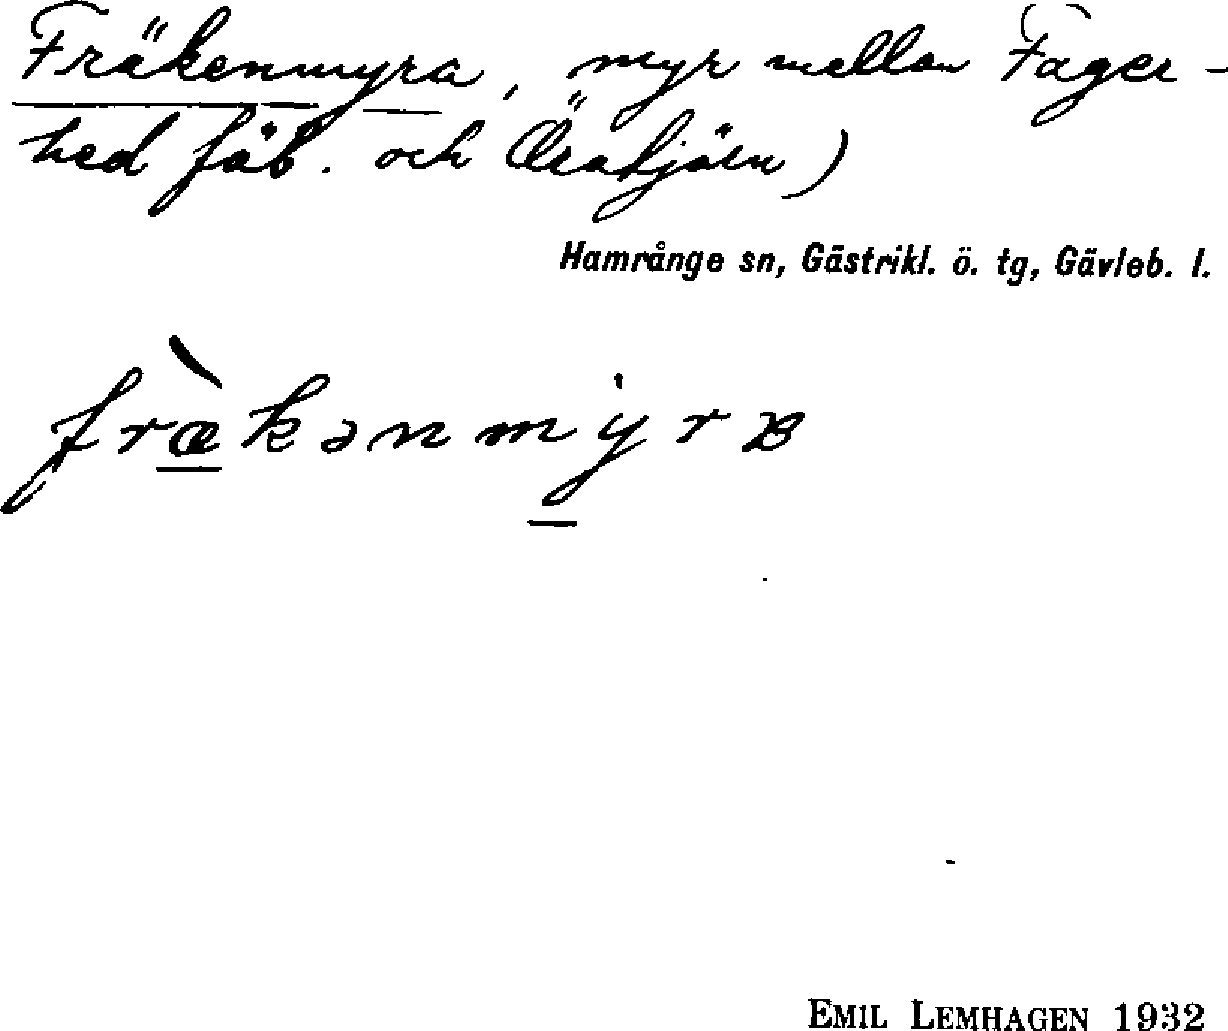 Fräkenmyra, myr mellan Fager-
hed fäb. och Öratjärn)
Hamrånge sn, Gästrikl. ö. tg, Gävleb. l.
fræ̀kənmyrɐ
EMIL LEMHAGEN 1932